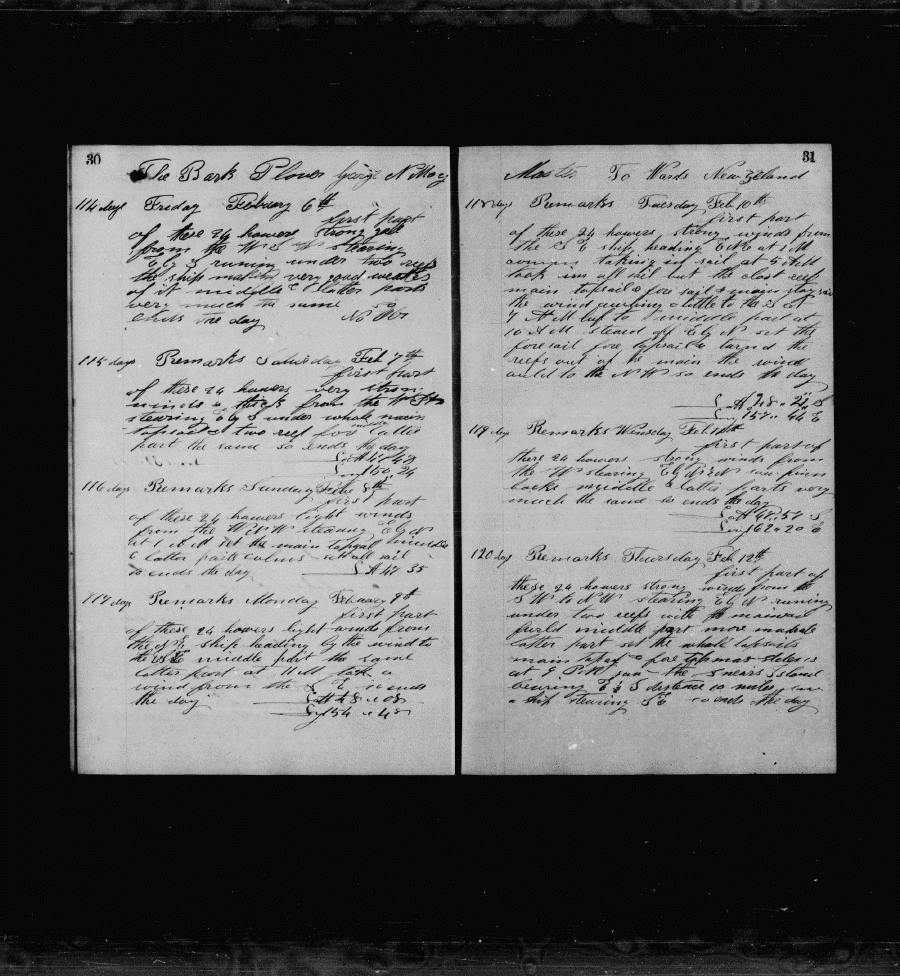 30
The Bark Plover George N Macy
114 days Friday Febuary 6th
first part
of these 24 howers strong gale
from the W S W stearing
E by S runing under two reefs
the ship making very good weather
of it middle & latter parts
very much the same
Ends the day No Obs
115 days Remarks Saturday Feb 7th
first part
of these 24 howers very strong
winds & thick from the
stearing E by S under whole main
topsail & two reef fore latter
part the same so Ends the day
47 49
150 24
116 days Remarks Sunday Feb 8th
first part
of these 24 howers light winds
from the W N W stearing E by N
at set the main topgal middle
& latter parts calms all sail
so ends the day 47 35
117 days Remarks Monday Febuary 9th
first part
of these 24 howers light winds from
the S E ship heading by the wind to
the middle part the same
latter part at M took a
wind from the so ends
the day 48 08
154 48
31
Master To Wards New Zeland
118 days Remarks Tuesday Feb 10th
first part
of these 24 howers strong winds from
the S E ship heading E N E at 1 M
taking in sail at 5 A M
took in all sail but the close reef
main topsail & fore sail & main stay sail
the wind hauling a little to the S at
7 A M middle part at
10 A M steard off E by N set the
foresail fore topsail & turned the
reefs out of the main the wind
to the N W so ends the day
48 S
157 44 E
119 day Remarks Wensday Feb 11th
first part of
these 24 howers strong winds from
the W stearing E by N saw
backs middle & latter parts very
much the same so ends the day
48 57 S
162 20 E
120 day Remarks Thursday Feb 12th
first part of
these 24 howers strong winds from the
S W to N W stearing E by N runing
under two reefs with the mainsail
furld middle part more modrate
latter part set the whole topsails
main topgal & fore topmas
at 9 P M saw the Snears Island
bearing E & S distence 10 miles saw
a ship stearing S E so ends the day